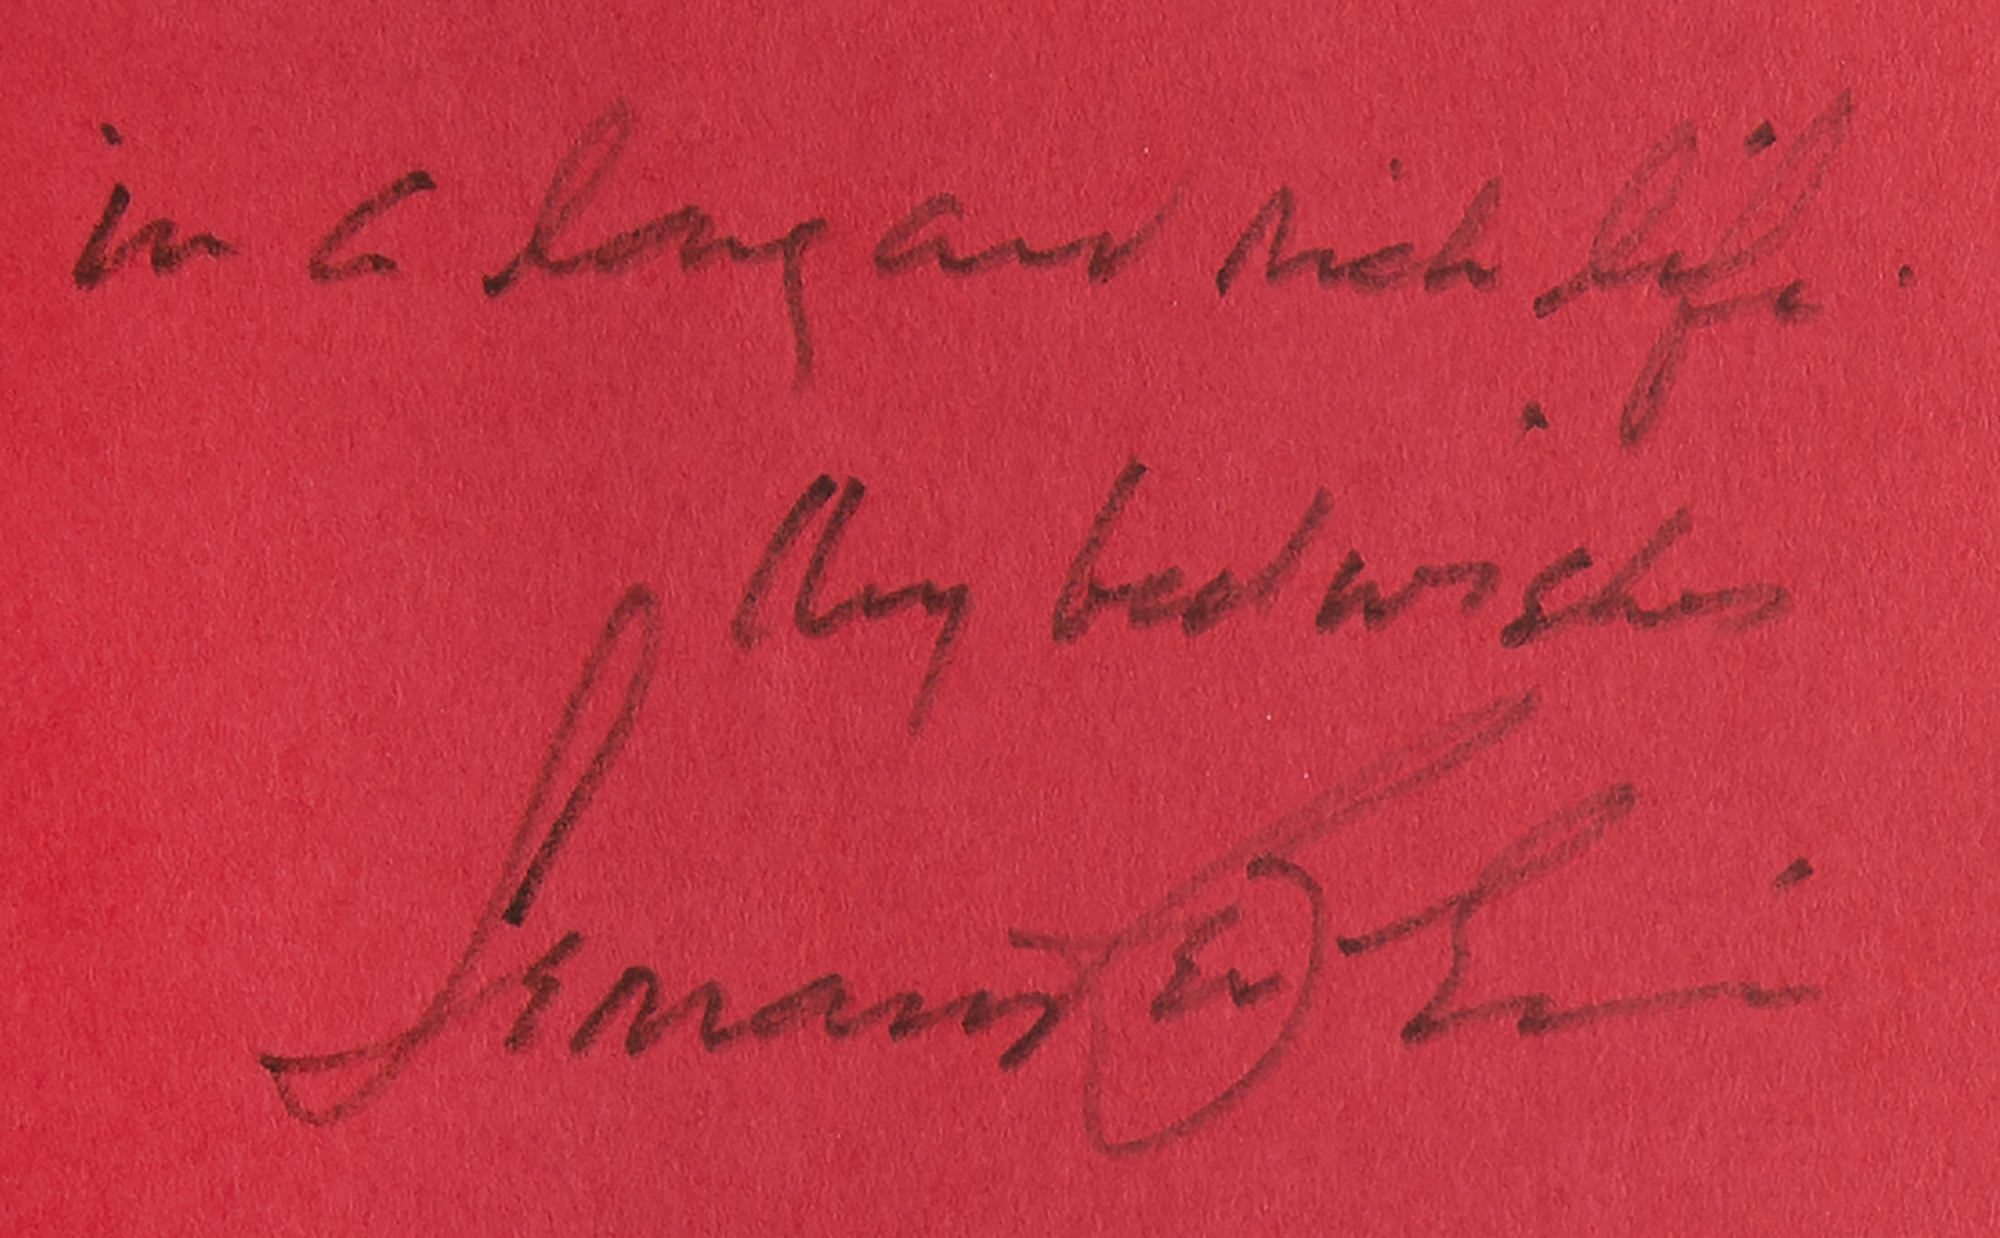 in a long and rich life.
My best wishes